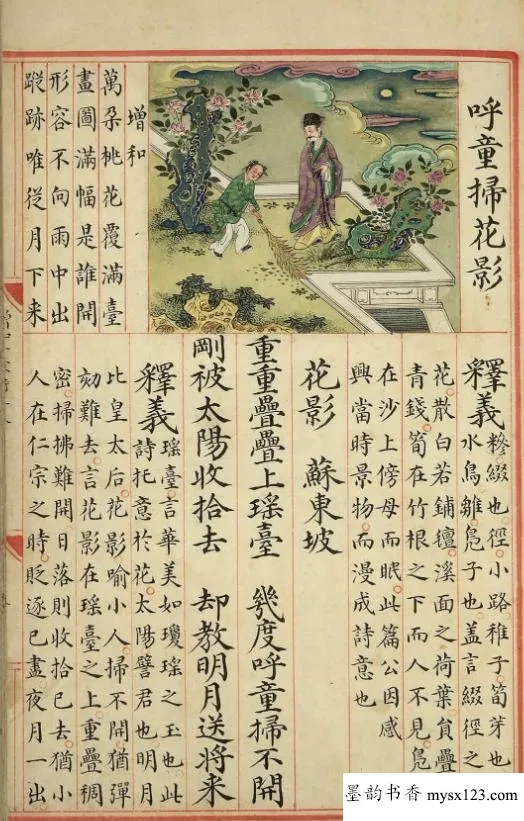 呼童掃花影
增和
萬朶桃花覆滿臺
畫圖滿幅是誰開
形容不向雨中出
蹤跡唯從月下来
釋義 糝綴也徑小路稚子筍芽也
水鳥雛鳧子也盖言綴徑之
花散白若鋪氊溪面之荷葉貟疊
青錢筍在竹根之下而人不見鳧
在沙上傍母而眠此篇公因感
興當時景物而漫成詩意也
花影 蘇東坡
重重疊疊上瑤臺 幾度呼童掃不開
剛被太陽收拾去 却教明月送將来
釋義 瑤臺言華美如瓊瑤之玉也此
詩托意於花太陽譬君也明月
比皇太后花影喻小人掃不開猶彈
劾難去言花影在瑤臺之上重疊稠
密掃拂難開日落則收拾已去猶小
人在仁宗之時貶逐已盡夜月一出
墨韵书香 mysx123.com